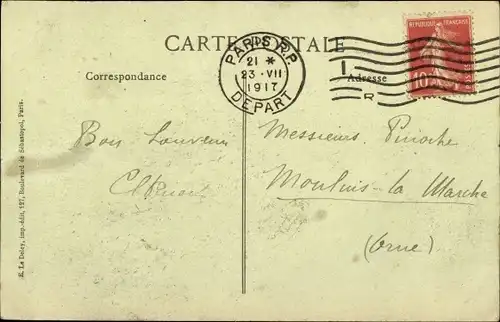 CARTE POSTALE
PARIS R.P.
21 *
23 · VII
1917
DEPART
REPUBLIQUE FRANÇAISE
10
Correspondance
Adresse
R
Bon Souvenir
Messieurs Pinoche
Moulins-la Marche
(Orne)
E. Le Deley, imp.-édit., 127, Boulevard de Sébastopol, Paris.